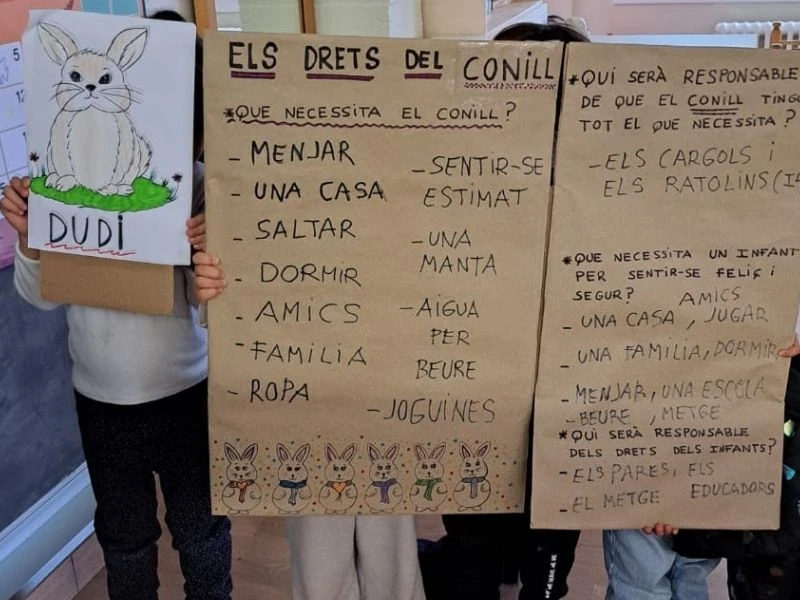 5
12
DUDI
ELS DRETS DEL CONILL
*QUE NECESSITA EL CONILL?
- MENJAR
- UNA CASA
- SALTAR
- DORMIR
- AMICS
- FAMILIA
- ROPA
- SENTIR-SE
ESTIMAT
- UNA
MANTA
- AIGUA
PER
BEURE
- JOGUINES
*QUI SERÀ RESPONSABLE
DE QUE EL CONILL TINGU
TOT EL QUE NECESSITA?
- ELS CARGOLS i
ELS RATOLINS
*QUE NECESSITA UN INFANT
PER SENTIR-SE FELIÇ i
SEGUR? AMICS
- UNA CASA, JUGAR
- UNA FAMILIA, DORMIR
- MENJAR, UNA ESCOLA
- BEURE, METGE
*QUI SERÀ RESPONSABLE
DELS DRETS DELS INFANTS?
- ELS PARES, ELS
EDUCADORS
- EL METGE